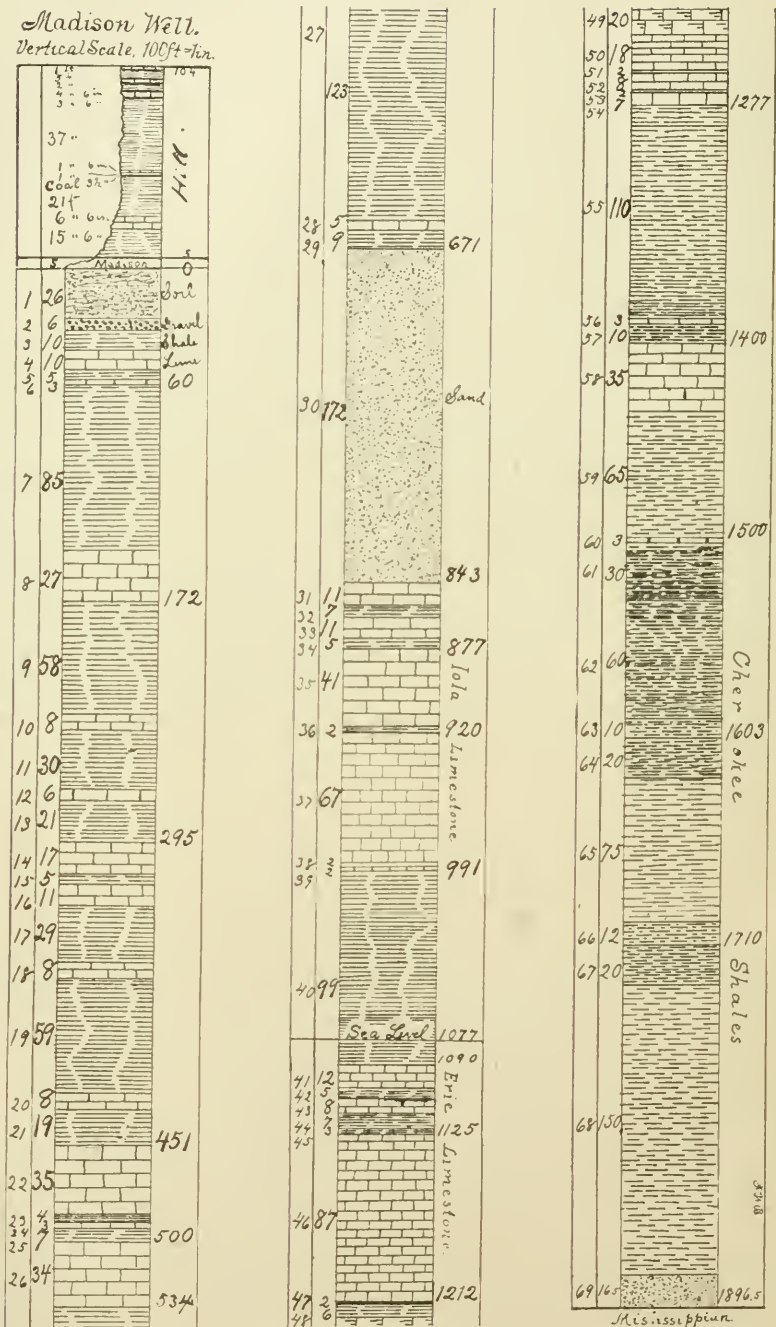 Madison Well.
Vertical Scale, 100ft=1in.
104
4 " 6in
3 " 6"
37 "
1 " 6in
Coal 3½"
21 ft
6 " 6in
15 " 6"
Hill.
5 Madison 5
0
1 26 Soil
2 6 Gravel
3 10 Shale
4 10 Lime
5 5
6 3 60
7 85
8 27 172
9 58
10 8
11 30
12 6
13 21 295
14 17
15 5
16 11
17 29
18 8
19 59
20 8
21 19 451
22 35
23 4
24 3
25 7 500
26 34 534
27 123
28 5
29 9 671
30 172 Sand
843
31 11
32 7
33 11
34 5 877
35 41
36 2 920
37 67
38 2
39 2 991
Iola Limestone
40 99
Sea Level 1077
1090
41 12
42 5
43 8
44 7
45 3 1125
46 87
1212
Erie Limestone
47 2
48 6
49 20
50 18
51 2
52 8
53 2
54 7 1277
55 110
56 3
57 10 1400
58 35
59 65
1500
60 3
61 30
62 60
63 10 1603
64 20
65 75
66 12 1710
67 20
68 150
Cherokee Shales
69 16.5 1896.5
Mississippian